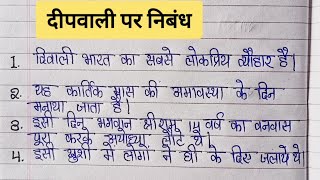 दीपवाली पर निबंध
1. दिवाली भारत का सबसे लोकप्रिय त्यौहार है।
2. यह कार्तिक मास की अमावस्या के दिन
मनाया जाता है।
3. इसी दिन भगवान श्रीराम 14 वर्ष का वनवास
पूरा करके अयोध्या लौटे थे।
4. इसी खुशी में लोगो ने घी के दिए जलाये थे।